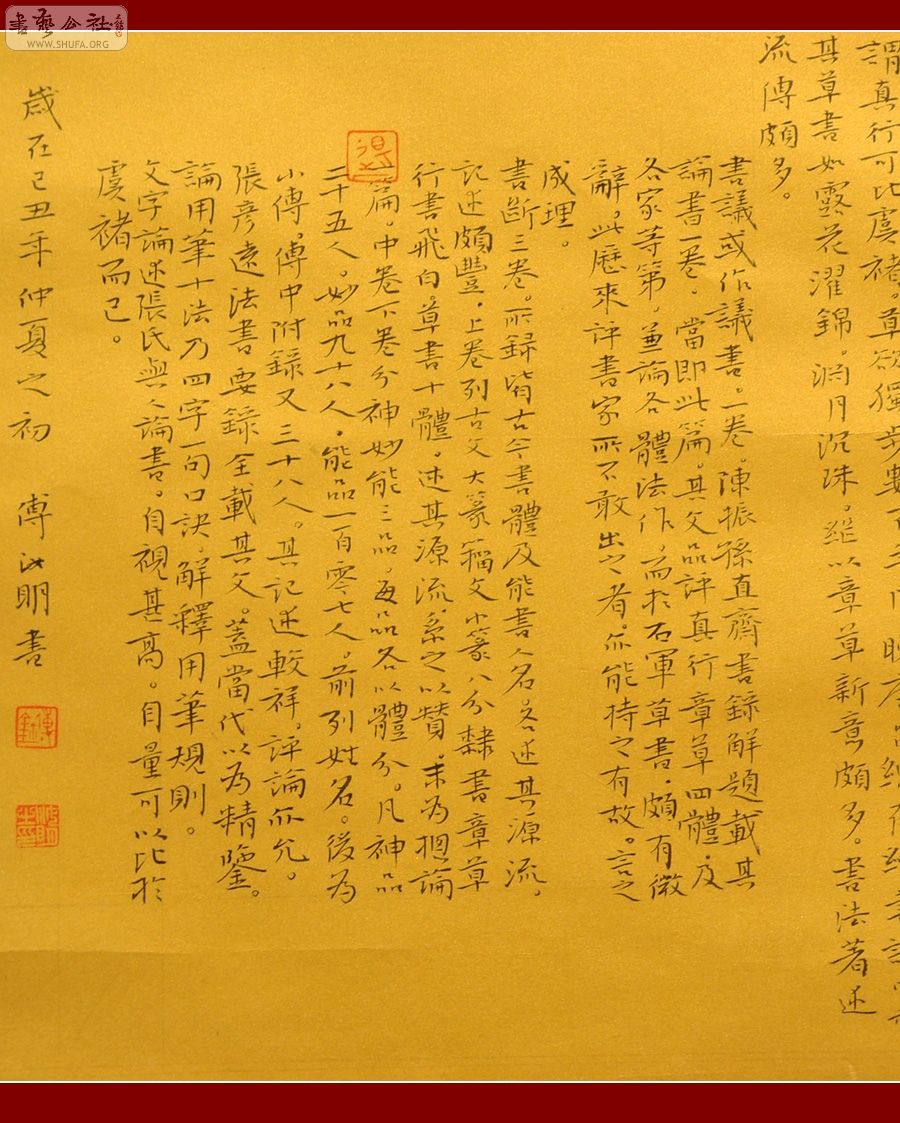 謂真行可比虞褚。草欲獨步
其草書如露花濯錦。淵月沉珠。繼以章草新意頗多。書法著述
流傳頗多。
書議或作議書。一卷。陳振孫直齋書錄解題載其
論書一卷。當即此篇。其文品評真行章草四體。及
各家等第。兼論各體法作。而於右軍草書。頗有微
辭。此歷來評書家所不敢出之者。亦能持之有故。言之
成理。
書斷三卷。所錄皆古今書體及能書人名。各述其源流。
記述頗豐。上卷列古文大篆籀文小篆八分隸書章草
行書飛白。草書十體。述其源流系之以贊。末為總論
一篇。中卷下卷分神妙能三品。每品各以體分。凡神品
二十五人。妙品九十八人。能品一百零七人。前列姓名。後為
小傳。傳中附錄又三十八人。其記述較祥。評論亦允。
張彥遠法書要錄全載其文。蓋當代以為精鑒。
論用筆十法乃四字一句口訣。解釋用筆規則。
文字論述張氏與人論書。自視甚高。自量可以比於
虞褚而已。
歲在己丑年仲夏之初 傅 明書
書藝公社
WWW.SHUFA.ORG